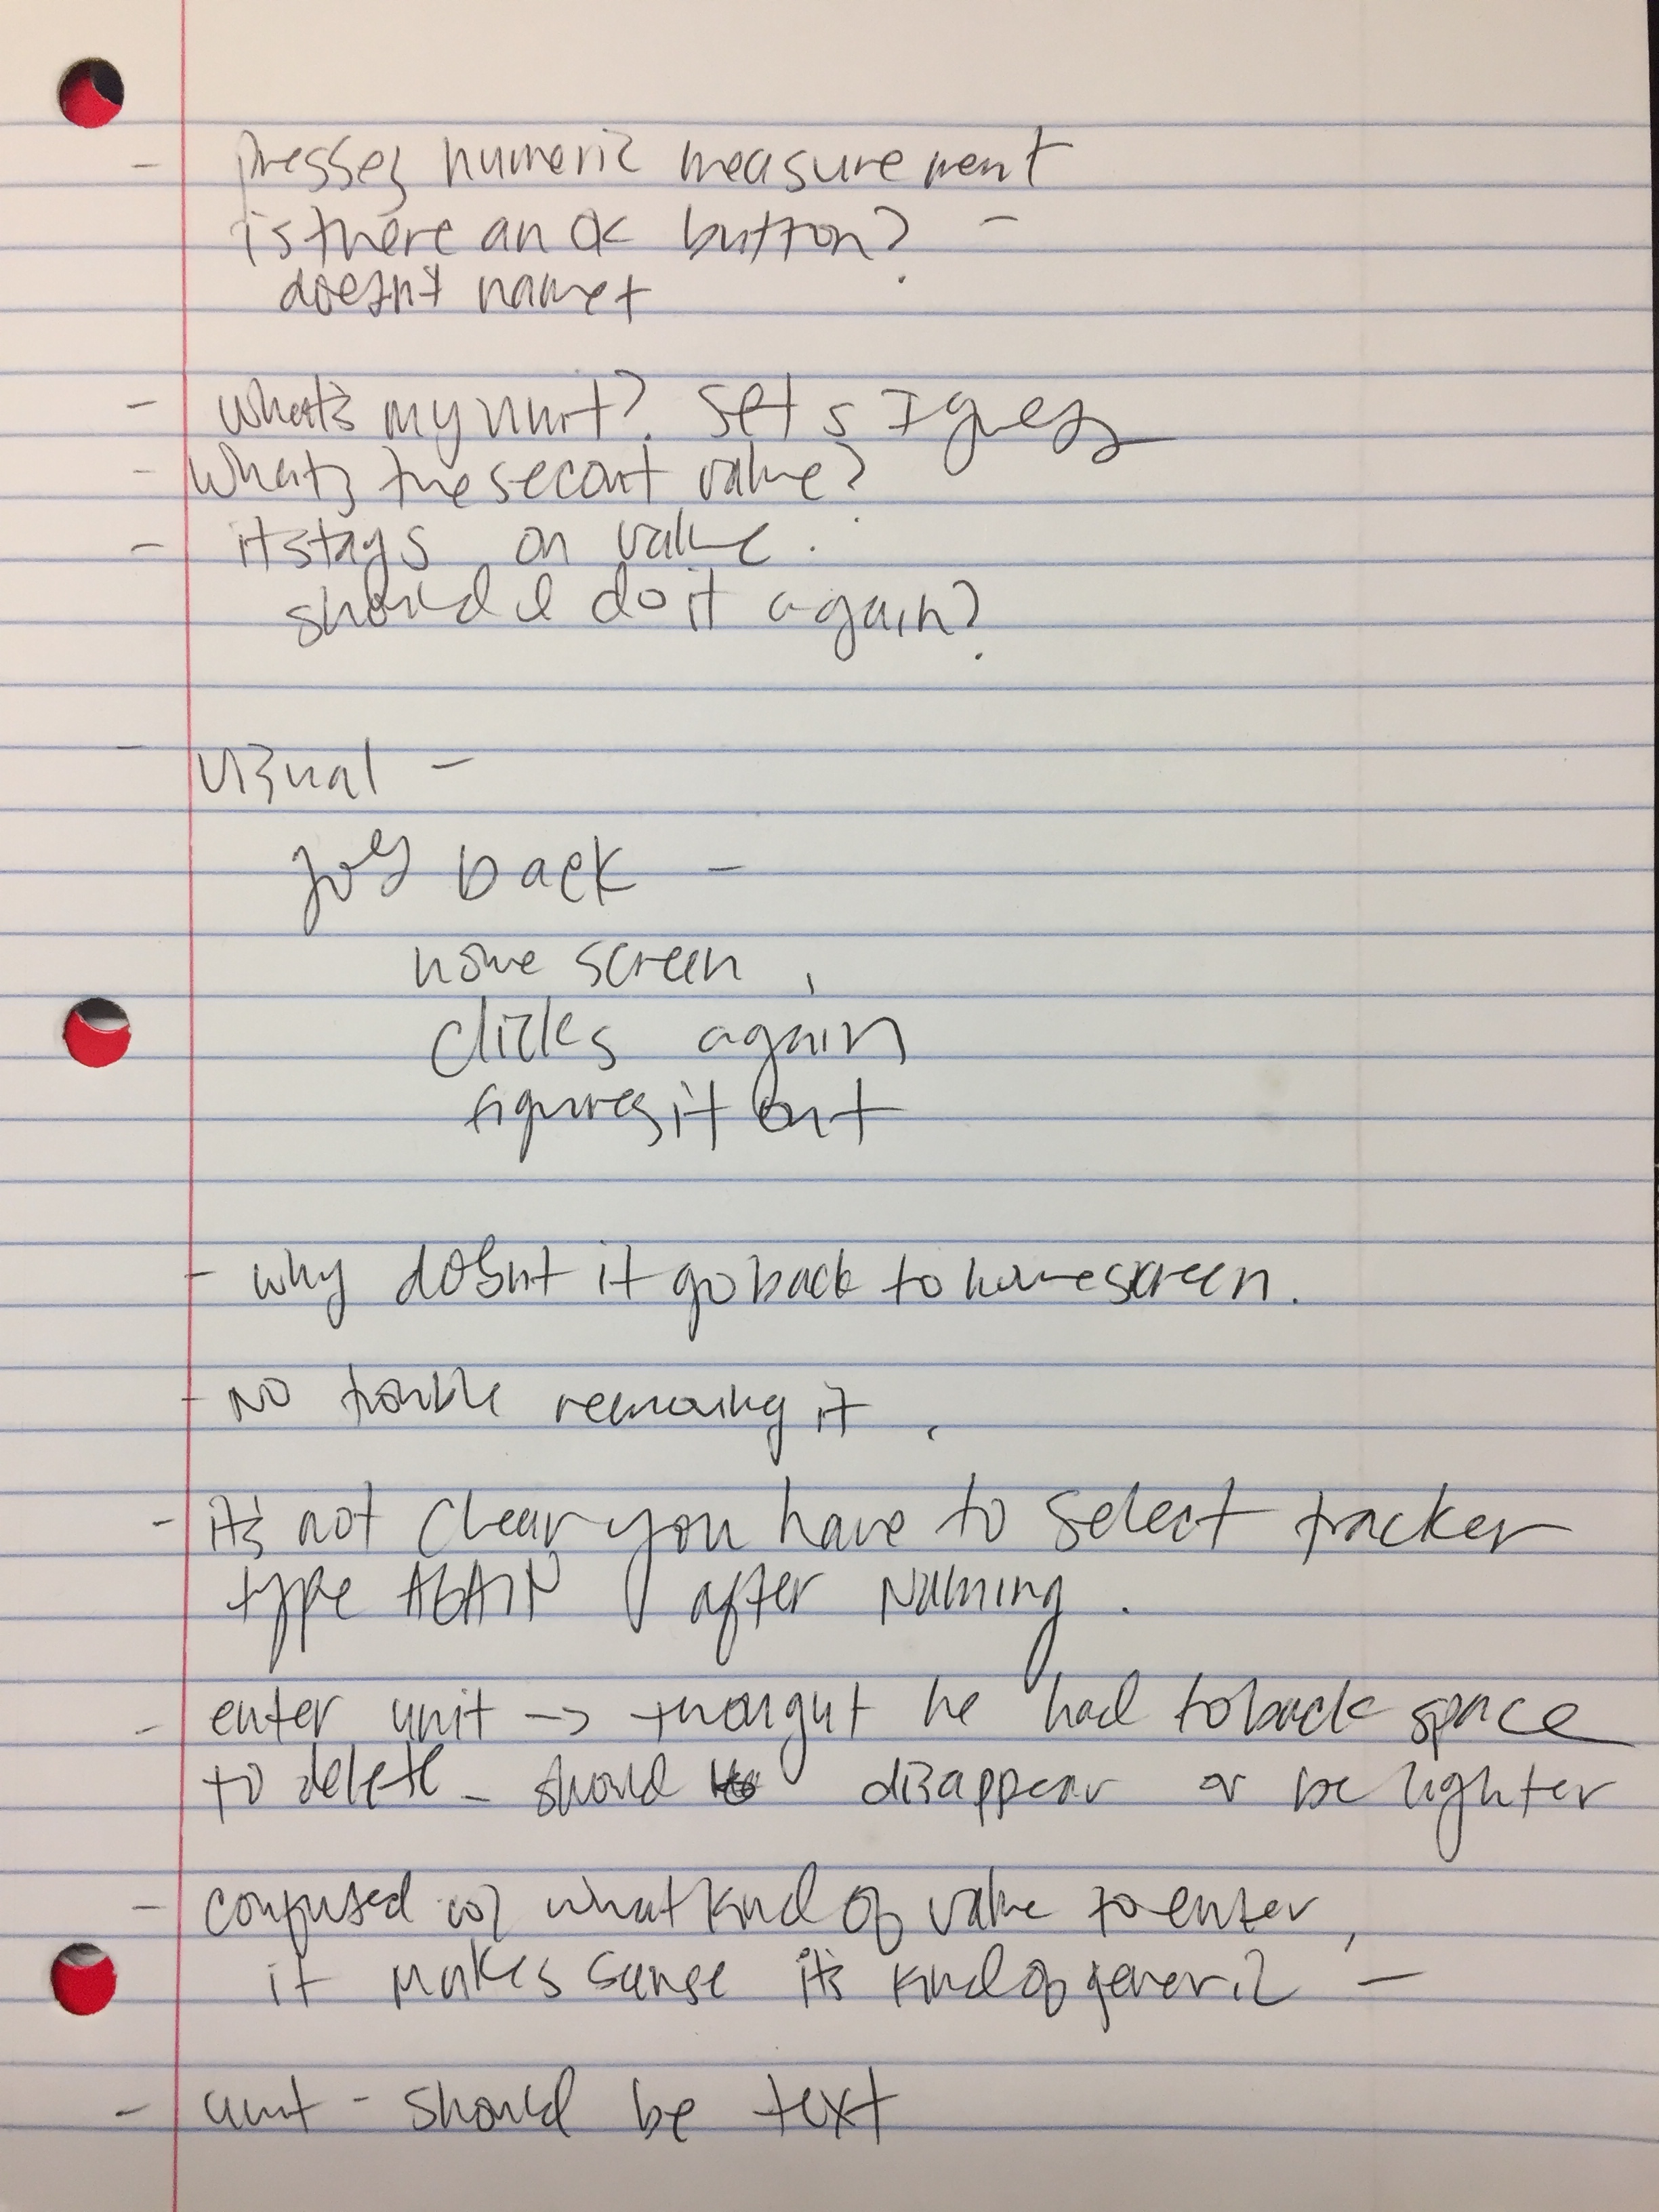 - presses numeric measurement
is there an ok button? -
doesn't name it
- what's my unit? sets I guess
- what's the second value?
- it stays on value.
should I do it again?
- visual -
goes back -
home screen,
clicks again
figures it out
- why doesn't it go back to home screen.
- No trouble removing it.
- it's not clear you have to select tracker
type AGAIN after Naming.
- enter unit -> thought he had to back space
to delete - should disappear or be lighter
- confused w/ what kind of value to enter,
it makes sense it's kind of generic -
- unit - should be text